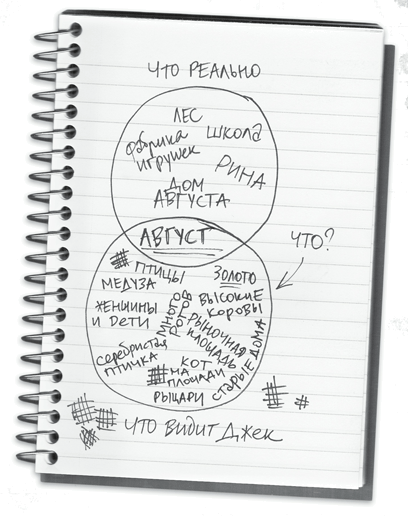 ЧТО РЕАЛЬНО
ЛЕС
ФАБРИКА
ИГРУШЕК
ШКОЛА
РИНА
ДОМ
АВГУСТА
АВГУСТ
ЧТО?
ПТИЦЫ
МЕДУЗА
ЗОЛОТО
ЖЕНЩИНЫ
И ДЕТИ
МНОГО
РОТОВ
ВЫСОКИЕ
КОРОВЫ
РЫНОЧНАЯ
ПЛОЩАДЬ
СТАРЫЕ ДОМА
СЕРЕБРИСТАЯ
ПТИЧКА
КОТ
НА
ПЛОЩАДИ
РЫЦАРИ
ЧТО ВИДИТ ДЖЕК